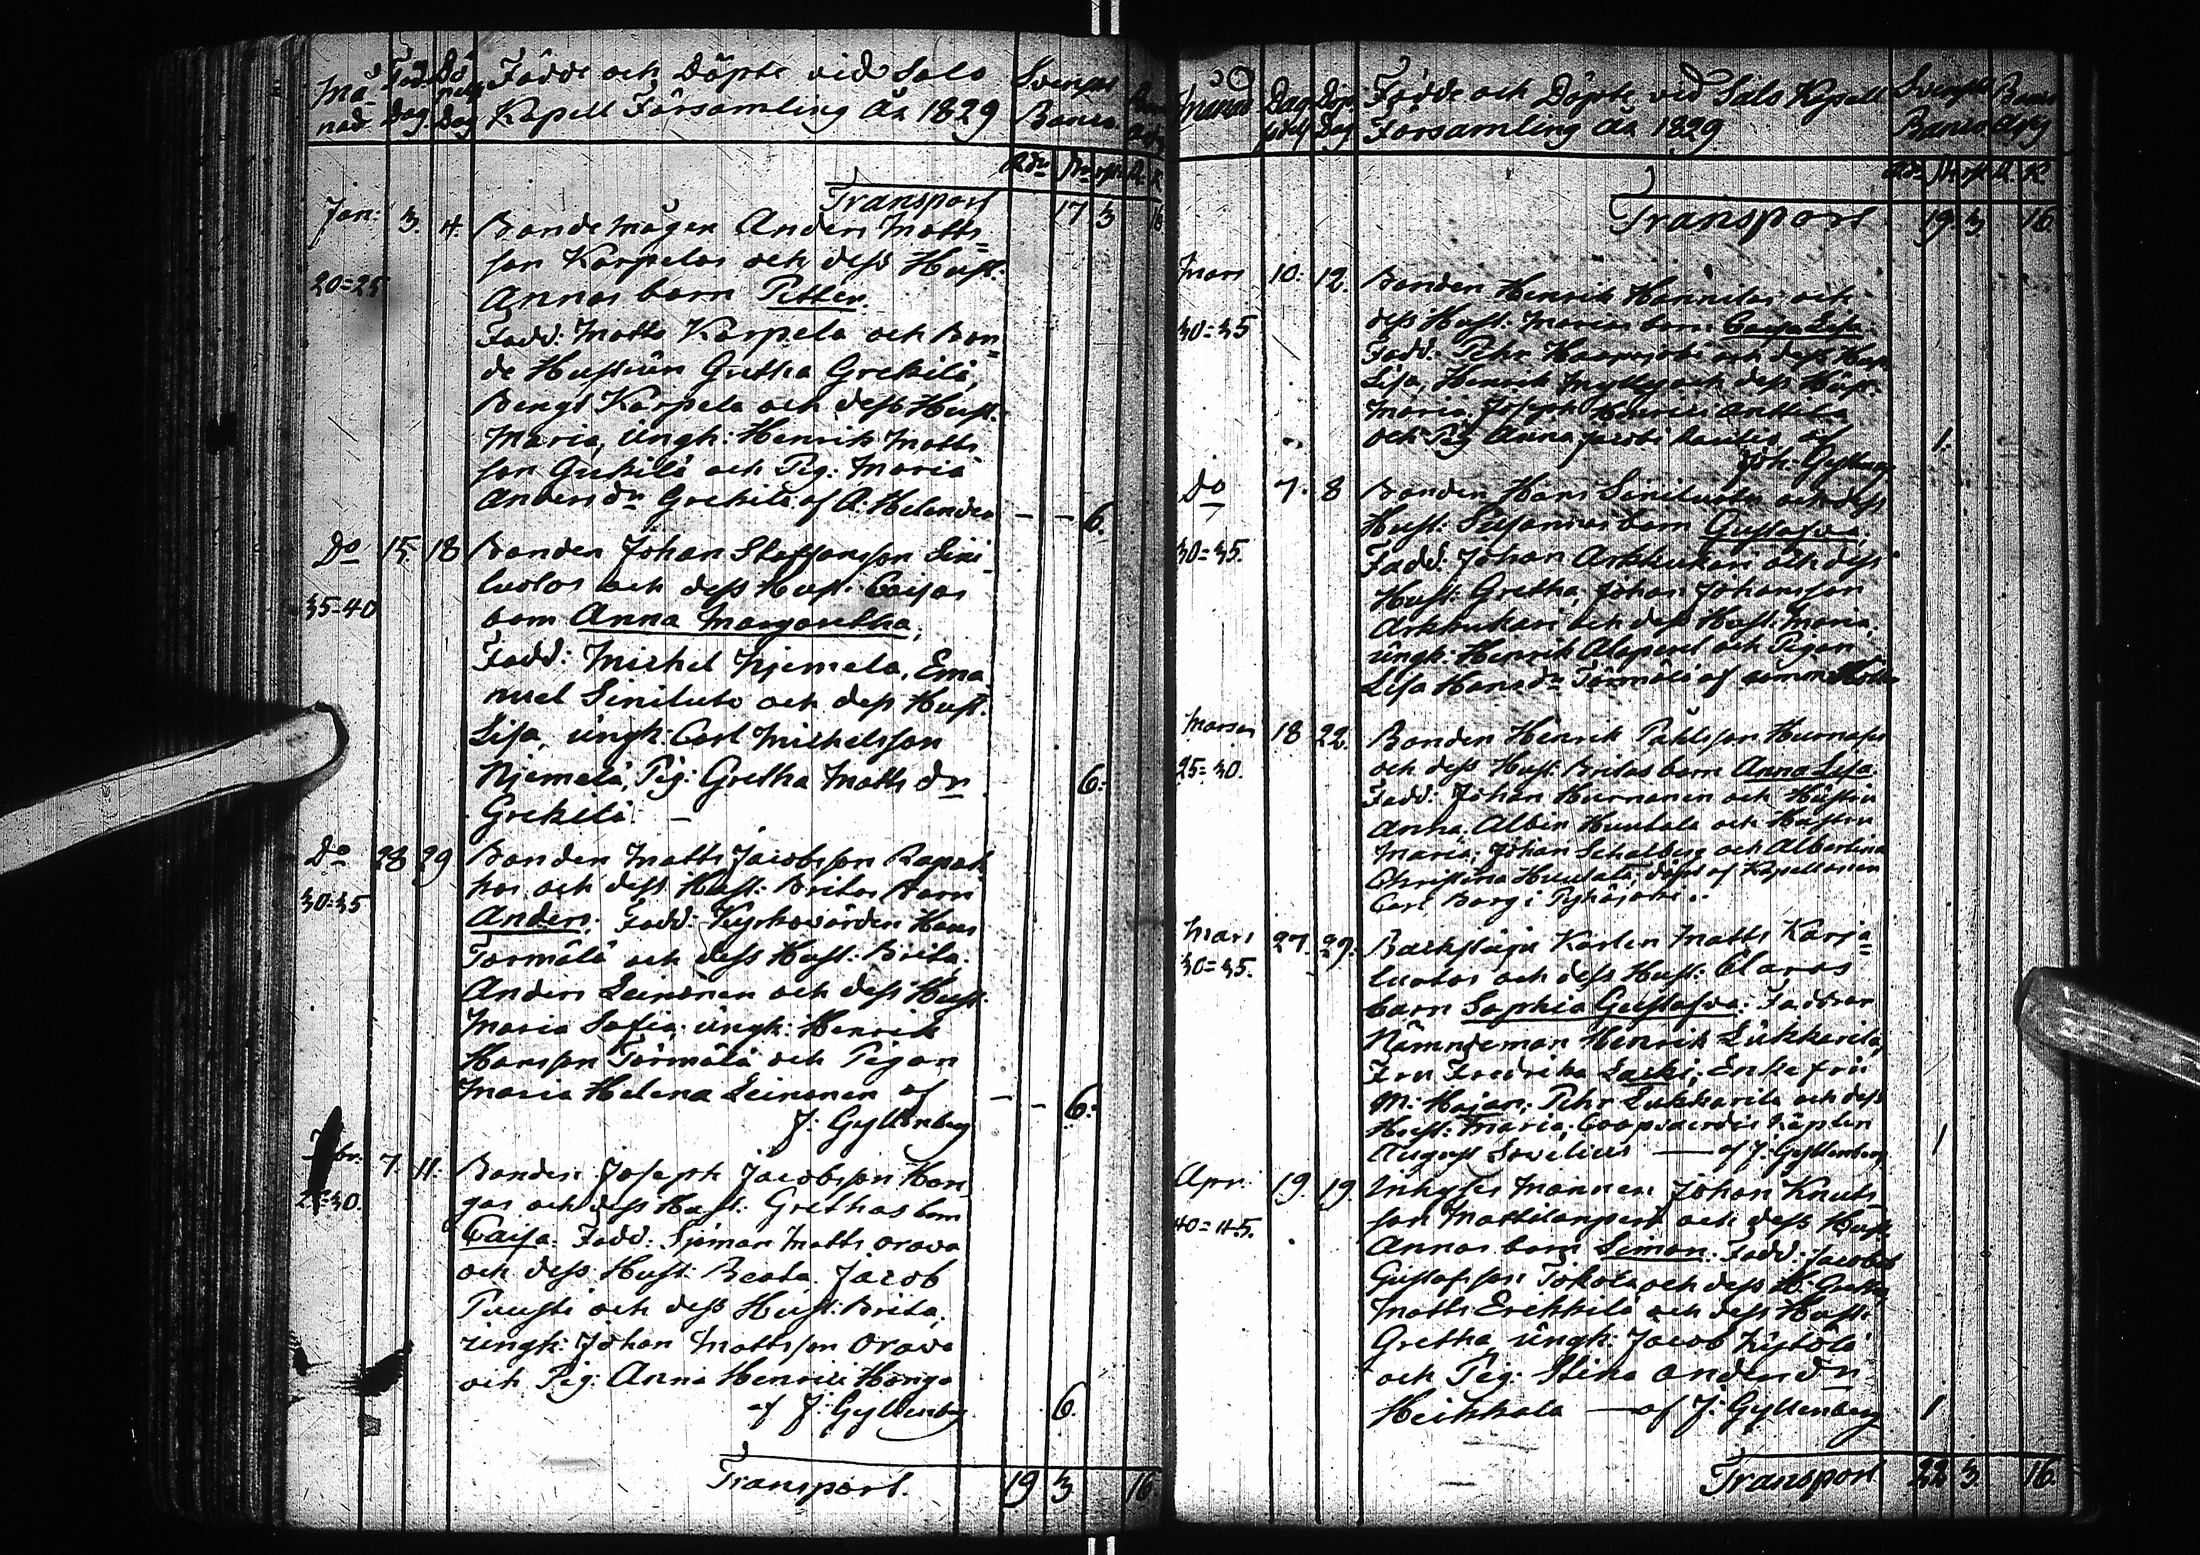 Må-
nad
Föd.
Dag
Dö-
pelse
Dag
Födde och Döpte vid Salo
Kapell Församling År 1829
Svenska
Banco.
Rdr sk rst R. K.
Transport 17 3 16
Jan: 3. 4. Bonde mågen Anders Matts-
20=25
son Karpelas och dess Hust:
Annas barn Petter.
Fadd: Matts Karpela och Bon-
de Hustrun Gretha Grekilä,
Bengt Karpela och dess Hust:
Maria, ungk: Henrik Matts
son Grekilä och Pig: Maria
Anders dr Grekilä af A. Helander — — 6.
Do 15. 18 Bonden Johan Staffansson Sini-
35=40
luotos och dess Hust: Caisas
barn Anna Margaretha;
Fadd: Michel Njemela, Ema-
nuel Siniluoto och dess Hust:
Lisa, ungk: Carl Michelsson
Njemelä, Pig: Gretha Matts dr 6:
Grekilä. —
Do 28 29 Bonden Matts Jacobsson
30=35
och dess Hust: Britas barn
Anders. Fadd: Kyrkovärden Hans
Törmälä och dess Hust: Brita.
Anders Leinonen och dess Hust:
Maria Sofia, ungk: Henrik
Hansson Törmälä och Pigan
Maria Helena Leinonen af — — 6:
J: Gyllenberg
Febr: 7. 11. Bonden Joseph Jacobsson Hon-
25=30.
gas och dess Hust: Grethas barn
Caisa. Fadd: Sjöman Matts Orava
och dess Hust: Beata. Jacob
Puusti och dess Hust: Brita,
ungk: Johan Mattsson Orava
och Pig: Anna Henrici Honga
af J: Gyllenberg 6.
Transport. 19 3 16
Månad Dag
född
Döp.
Dag
Födde och Döpte vid Salo Kapell
Församling År 1829
Svensk
Banco
Rdr sk rst R. K.
Transport 19. 3 16.
Mars 10. 12. Bonden Henrik Hannilas och
30=35
dess Hust: Marias barn Caisa Lisa.
Fadd: Pehr och dess Hust
Lisa, Henrik Mylly och dess Hust:
Maria, Joseph Henrici Anttila
och Pig Anna Jacobi af 1.
Joh: Gyllenberg
Do 7. 8 Bonden Hans Siniluoto och dess
30=35.
Hust: Susannas barn Gustafva;
Fadd: Johan Arkkukari och dess
Hust: Gretha, Johan Johansson
Arkkukari och dess Hust: Maria,
ungk: Henrik och Pigan
Lisa Hans dr Törmälä af
18 22. Bonden Henrik Påhlsson
25=30.
och dess Hust: Britas barn Anna Lisa.
Fadd: Johan Hurnanen och Hustru
Anna, Albin Huutala och Hustru
Maria; Johan och Albertina
Christina Huutala, döpt af Kapellanen
Carl Borg i Pyhäjoki.
Mars 27. 29. Backstugu Karlen Matts Karja-
30=35.
luotos och dess Hust: Claras
barn Sophia Gustafva. Faddrar
Nämndeman Henrik Lukkarila,
Fru Fredrika Laski; Enkefru
M: Hajan; Pehr Lukkarila och dess
Hust: Maria, Coopvaerdie Capten
August Sovelius — af J: Gyllenberg 1
Apr: 19. 19. Inhyses Mannen Johan Knuts-
40=45.
son Mattilanperä och dess Hust:
Annas barn Simon. Fadd: Jacob
Gustafsson Tokola och dess H: Gretha,
Matts Erkkilä och dess Hust:
Gretha, ungk: Jacob
och Pig: Stina Anders dr
Heikkola — af J: Gyllenberg 1
Transport 22 3. 16.